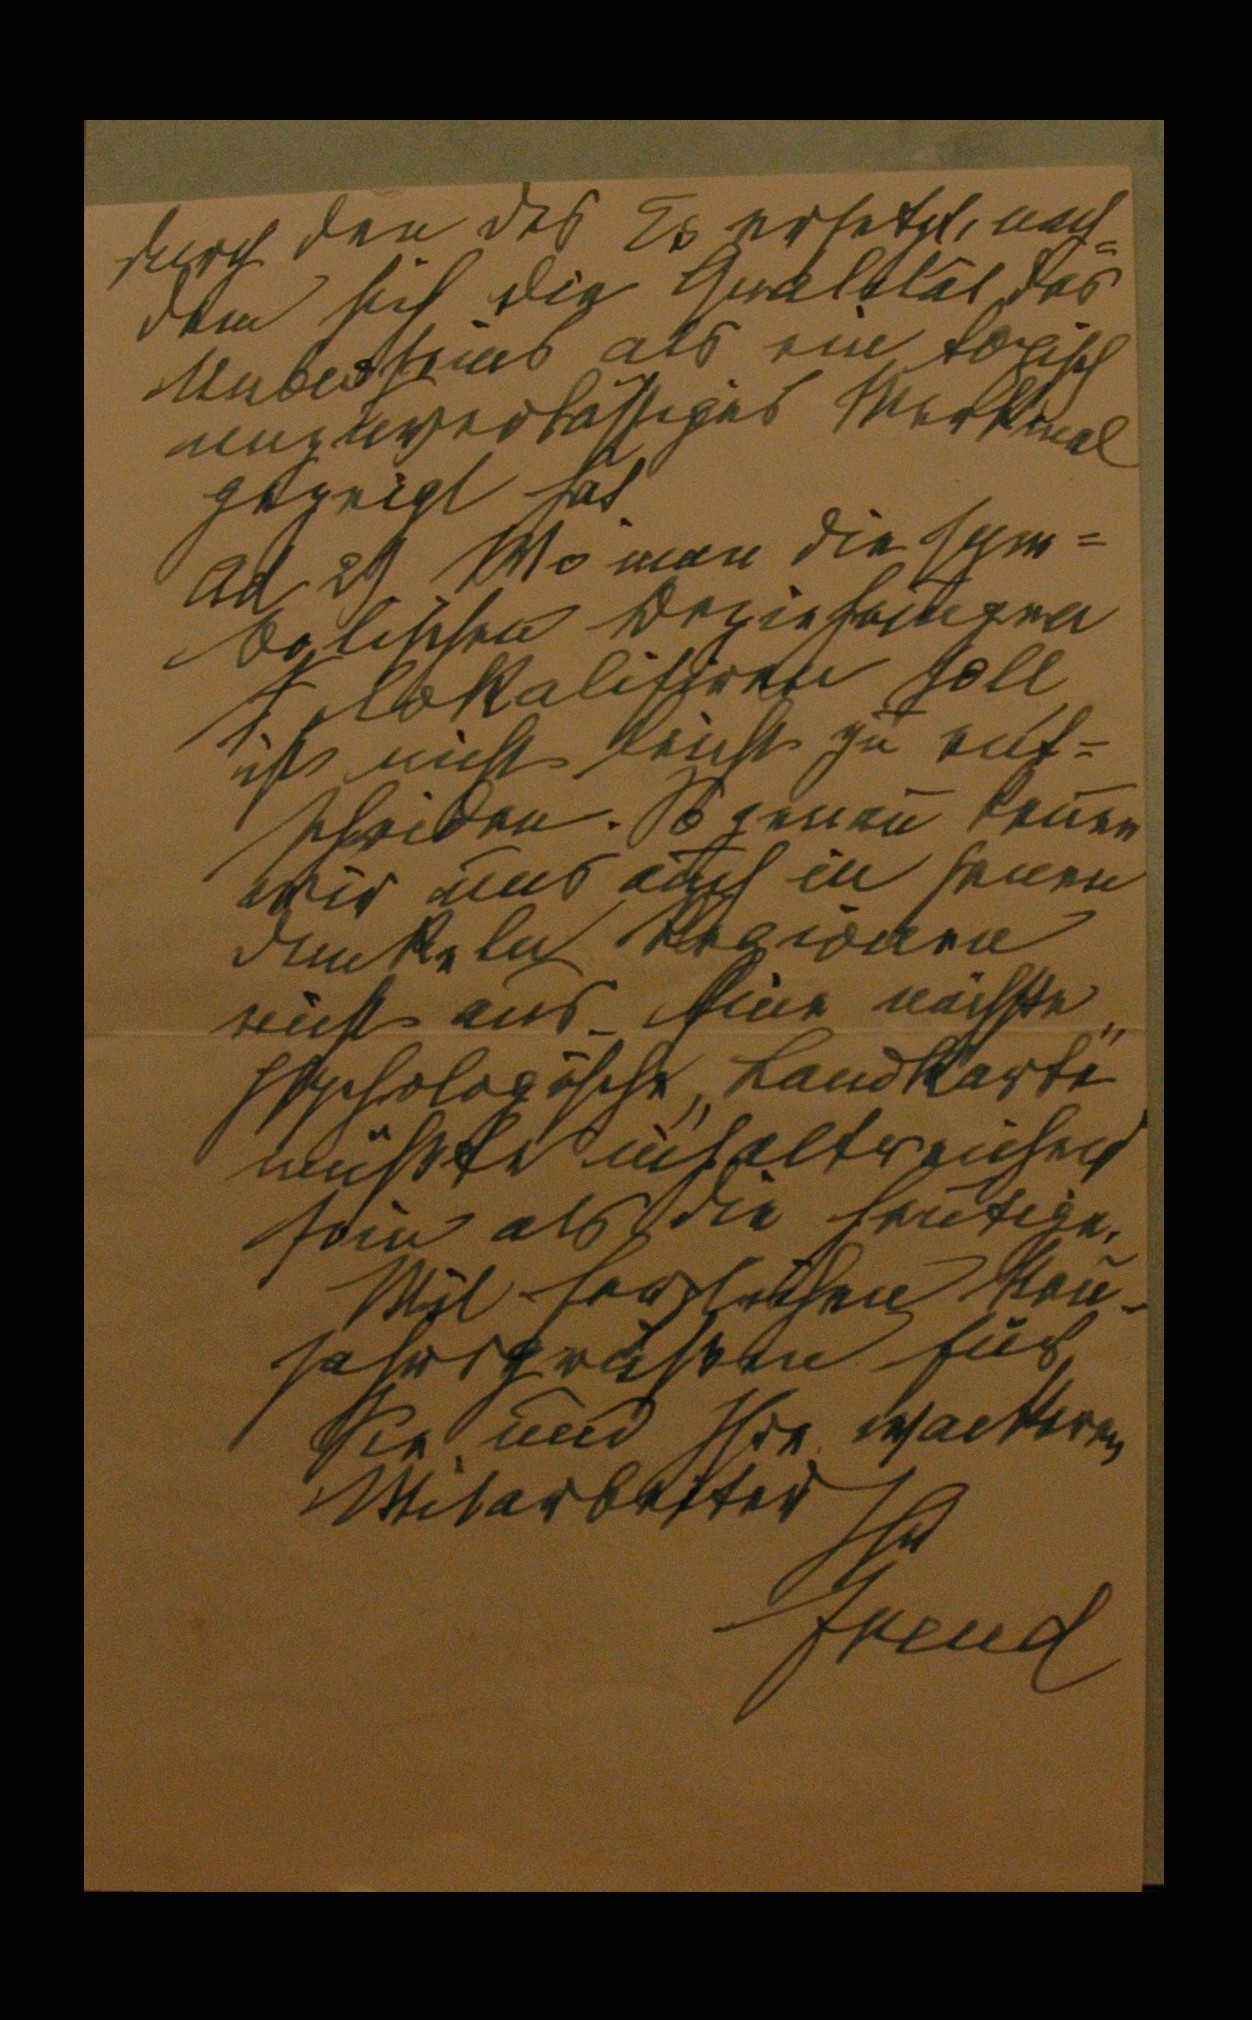 durch den des Es ersetzt, nach=
dem sich die Qualität des
Unbewßtseins als ein topisch
unzuverlässiges Merkmal
gezeigt hat
Ad 2) Wo man die sym=
bolischen Beziehungen
lokalisiren soll
ist nicht leicht zu ent=
scheiden. So genau kennen
wir uns auch in jenen
dunkeln Regionen
nicht aus. Eine nächste
psychologische „Landkarte“
müsste inhaltreicher
sein als die heutige.
Mit herzlichen Neu-
jahrsgrüßen für
Sie und Ihre wackeren
Mitarbeiter
Ihr
Freud